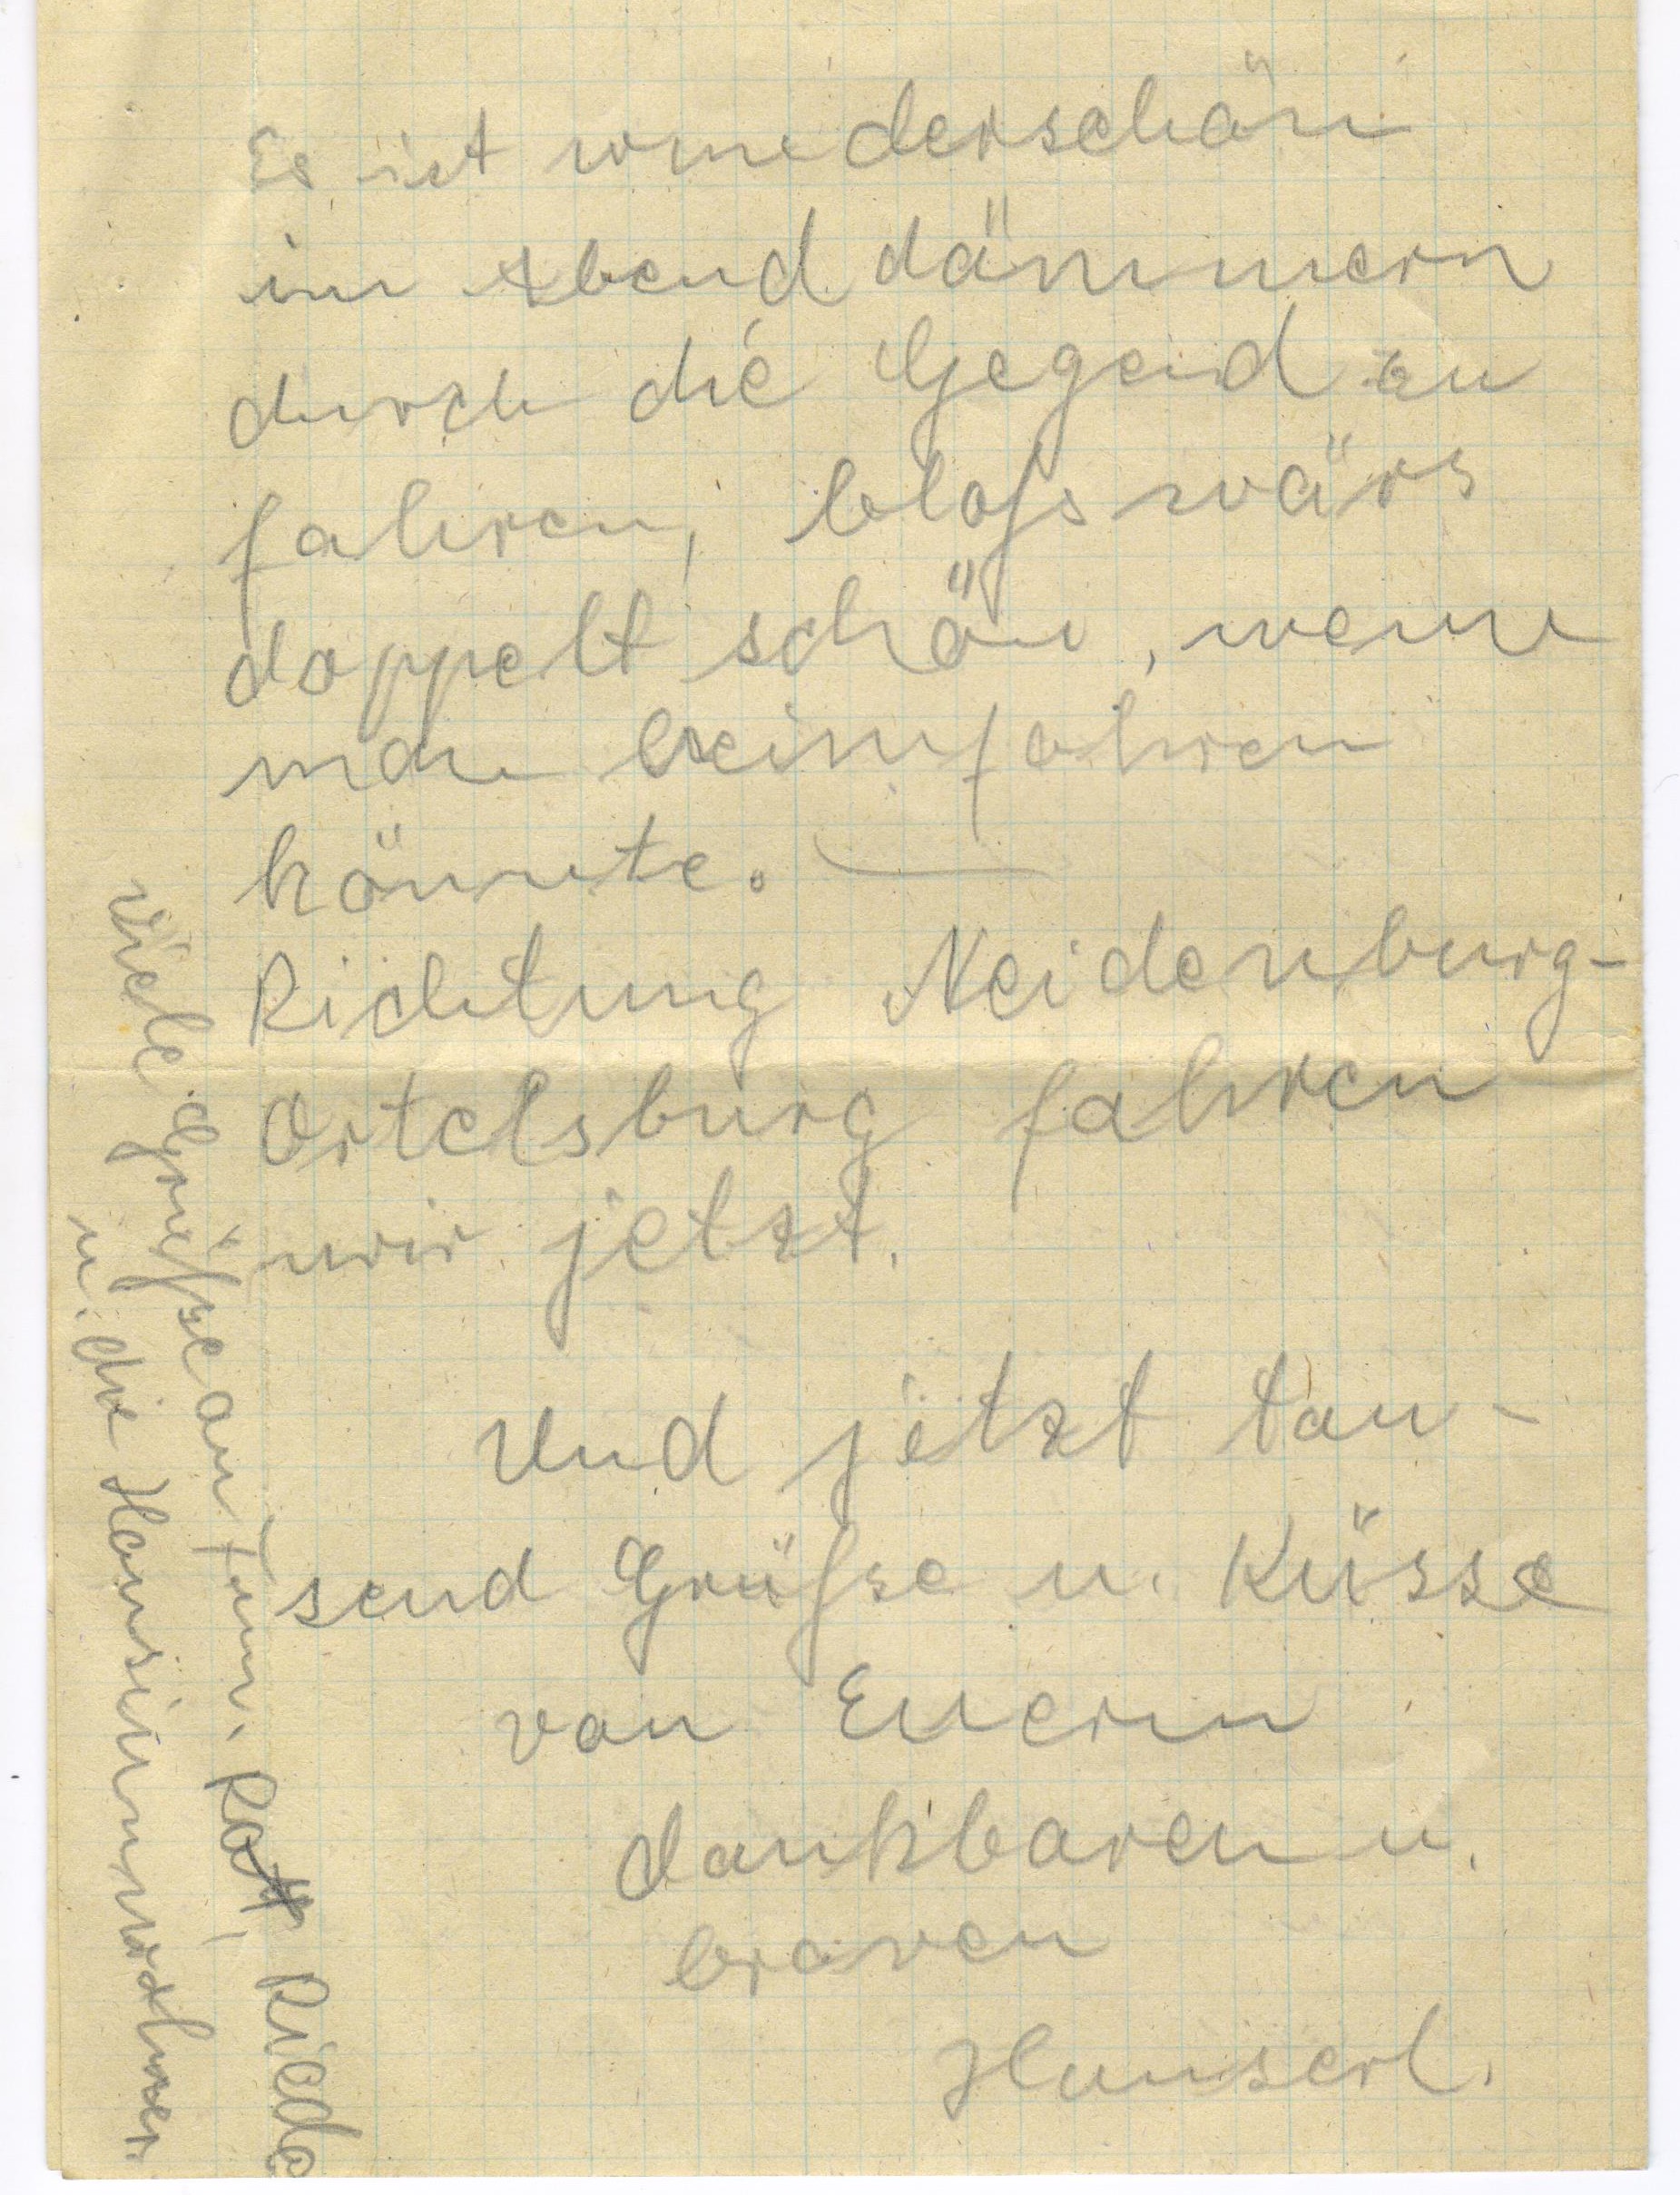 Es ist wunderschön
im Abend dämmern
durch die Gegend zu
fahren, bloſs wärs
doppelt schön, wenn
man heimfahren
könnte.
Richtung Neidenburg-
Ortelsburg fahren
wir jetzt.
Und jetzt tau-
send Grüſse u. Küsse
von Euerm
dankbaren u.
braven
Hanserl.
Viele Grüſse an Fam. Rott, Riede
u. die Hauseinwohner